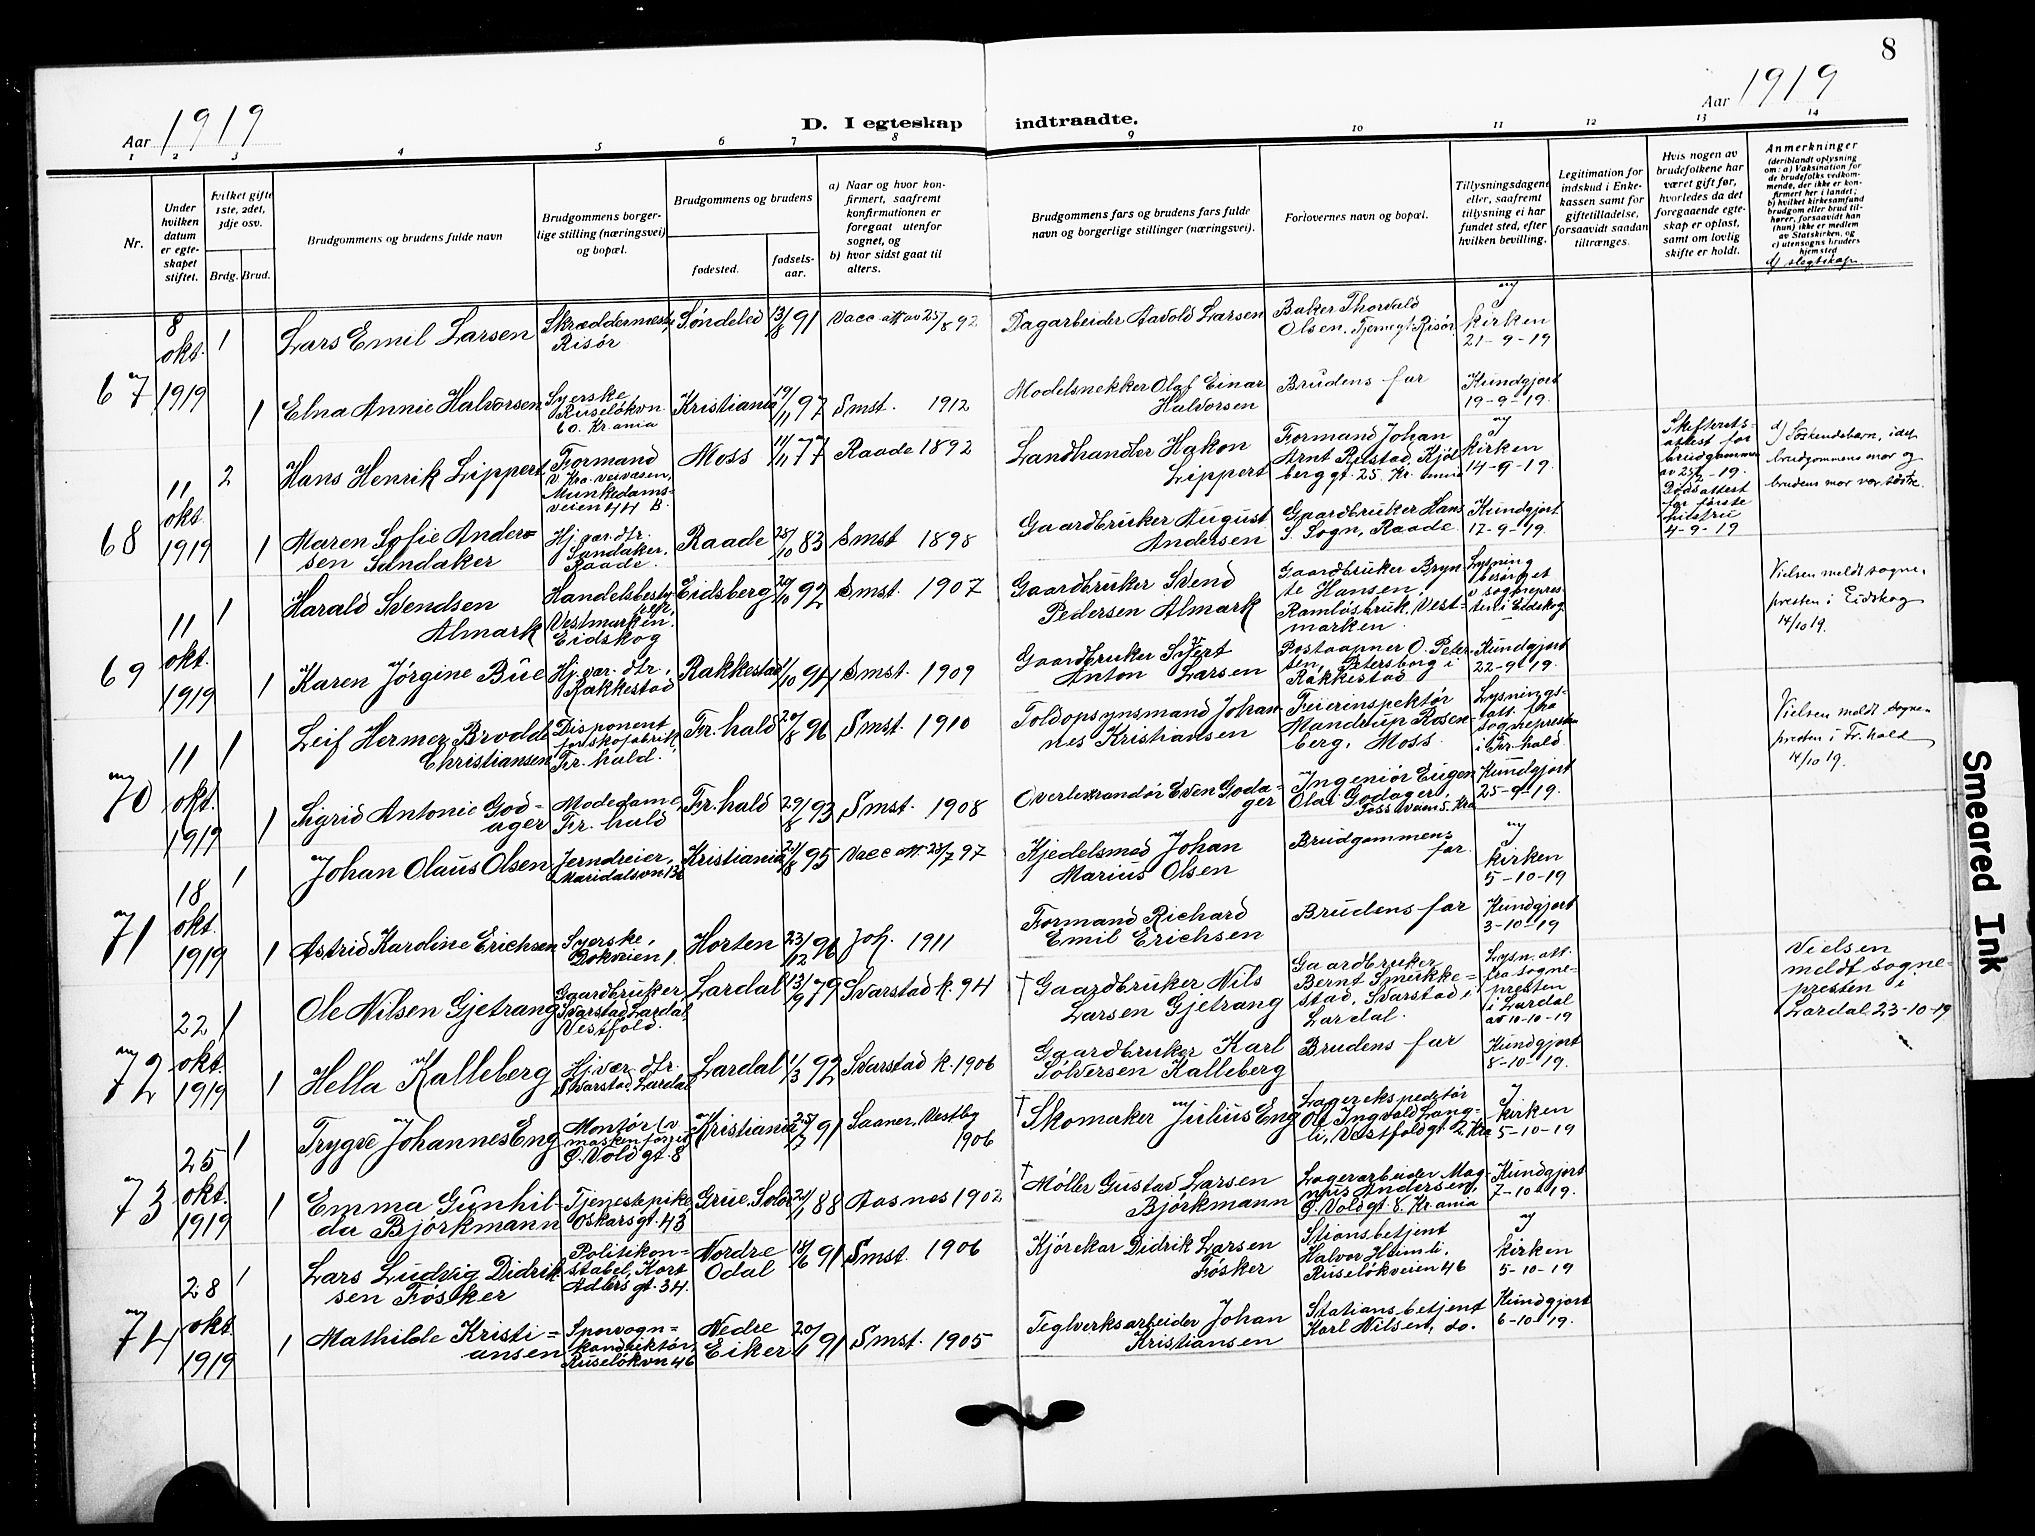 8
Aar 1919
D. I egteskap indtraadte.
Aar 1919
1 2 3 4 5 6 7 8 9 10 11 12 13 14
Nr.
Under hvilken datum er egteskapet stiftet.
Hvilket gifte 1ste, 2det, 3dje osv.
Brdg. Brud.
Brudgommens og brudens fulde navn
Brudgommens borgerlige stilling (næringsvei) og bopæl.
Brudgommens og brudens
fødested. fødselsaar.
a) Naar og hvor konfirmert, saafremt konfirmationen er foregaat utenfor sognet, og
b) hvor sidst gaat til alters.
Brudgommens fars og brudens fars fulde navn og borgerlige stillinger (næringsvei).
Forlovernes navn og bopæl.
Tillysningsdagene eller, saafremt tillysning ei har fundet sted, efter hvilken bevilling.
Legitimation for indskud i Enkekassen samt for giftetilladelse, forsaavidt saadan tiltrænges.
Hvis nogen av brudefolkene har været gift før, hvorledes da det foregaaende egteskap er opløst, samt om lovlig skifte er holdt.
Anmerkninger
(deriblandt oplysning om: a) Vaksination for de brudefolks vedkommende, der ikke er konfirmert her i landet; b) hvilket kirkesamfund brudgom eller brud tilhører, forsaavidt han (hun) ikke er medlem av Statskirken, og c) utensogns bruders hjemsted
d) slegtskap.
67
8 okt. 1919
1
Lars Emil Larsen
Skræddermester Risør
Søndeled
13/8 91
Vacc. att av 25/8 92
Dagarbeider Aavold Larsen
Baker Thorvald Olsen, Tjernegt. Risør
kirken 21-9-19
1
Elna Annie Halvorsen
Syerske Ruseløkvn 60. Kr.ania
Kristiania
19/11 97
Smst. 1912
Modelsnekker Olaf Einar Halvorsen
Brudens far
Kundgjort 19-9-19.
68
11 okt. 1919
2
Hans Henrik Lippert
Formand v. Kra. veivæsen, Munkedamsveien 44 B.
Moss
11/11 77
Raade 1892
Landhandler Hakon Lippert
Formand Johan Arnt Rustad, Kjølberggt. 25. Kr.ania
kirken 14-9-19.
Skifteretsattest for brudgommen av 25/2-19.
Dødsattest for første hustru 4-9-19
d) Søskendebarn, idet brudgommens mor og brudens mor var søstre.
1
Maren Sofie Andersen Sundaker
Hj. vær. dtr. Sundaker, Raade.
Raade
25/10 83
Smst 1898
Gaardbruker August Andersen
Gaardbruker Hans S. Sogn, Raade
Kundgjort 17-9-19.
69
11 okt. 1919
1
Harald Svendsen Almark
Handelsbestyrer, Vestmarken, Eidskog
Eidsberg
20/10 92
Smst. 1907
Gaardbruker Svend Pedersen Almark
Gaardbruker Brynte Hansen, Ramløsbruk, Vestmarken.
Lysning besørget v sognepresten i Eidskog
Vielsen meldt sognepresten i Eidskog 14/10 19.
1
Karen Jørgine Bue
Hj. vær. dtr., Rakkestad
Rakkestad
1/10 94
Smst. 1909
Gaardbruker Sivert Anton Larsen
Postaapner O. Petersen, Petersborg i Rakkestad
Kundgjort 22-9-19.
70
11 okt. 1919
1
Leif Hermez Brodde Christiansen
Disponent for skofabrik, Fr. hald.
Fr. hald
20/8 96
Smst. 1910
Toldopsynsmand Johannes Kristiansen
Feierinspektør Mandrup Rosenberg, Moss.
Lysningsatt. fra sognepresten i Fr. hald.
Vielsen meldt sognepresten i Fr. hald 14/10 19.
1
Sigrid Antonie Godager
Modedame, Fr. hald
Fr. hald
29/8 93
Smst. 1908
Overleverandør Even Godager
Ingeniør Eugen Olaf Godager, Fossveien 5. Kra
Kundgjort 25-9-19.
71
18 okt. 1919
1
Johan Olaus Olsen
Jerndreier, Maridalsvn 136
Kristiania
21/8 95
Vacc. att. 23/7 97
Kjedelsmed Johan Marius Olsen
Brudgommens far.
kirken 5-10-19
1
Astrid Karoline Erichsen
Syerske, Dokveien 1.
Horten
23/12 96
Joh. 1911
Formand Richard Emil Erichsen
Brudens far
Kundgjort 3-10-19
72
22 okt. 1919
1
Ole Nilsen Gjetrang
Gaardbruker Svarstad, Lardal, Vestfold.
Lardal
13/9 79
Svarstad k. 94
† Gaardbruker Nils Larsen Gjetrang
Gaardbruker Bernt Smukkestad, Svarstad i Lardal.
Lysn. att. fra sognepresten i Lardal av 10-10-19
Vielsen meldt sognepresten i Lardal 23-10-19
1
Hella Kalleberg
Hj. vær. dtr. Svarstad, Lardal
Lardal
1/3 92
Svarstad k. 1906
Gaardbruker Karl Sølversen Kalleberg
Brudens far
Kundgjort 8-10-19.
73
25 okt. 1919
1
Trygve Johannes Eng
Montør (v maskinforret. Ø. Voldgt. 8
Kristiania
25/7 91
Saaner, Vestby 1906
† Skomaker Julius Eng
Lagerekspeditør Olf Ingvald Langli, Vestfoldgt. 2 Kra
kirken 5-10-19
1
Emma Gunhilda Bjørkmann
Tjenestepike Oskarsgt. 43
Grue, Solør
21/1 88
Aasnes 1902
† Møller Gustav Larsen Bjørkmann
Lagerarbeider Magnus Andersen, Ø. Voldgt. 8. Kr.ania
Kundgjort 7-10-19.
74
28 okt. 1919
1
Lars Ludvig Didriksen Fosker
Politikonstabel, Kort Adlersgt. 34.
Nordre Odal
15/6 91
Smst. 1906
Kjørekar Didrik Larsen Fosker
Stionsbetjent Halvor Heimli, Ruseløkveien 46
kirken 5-10-19
1
Mathilde Kristiansen
Sporvognskonduktør, Ruseløkvn 46
Nedre Eiker
20/1 91
Smst. 1905
Teglverksarbeider Johan Kristiansen
Stationsbetjent Karl Nilsen, do.
Kundgjort 6-10-19.
Smeared Ink